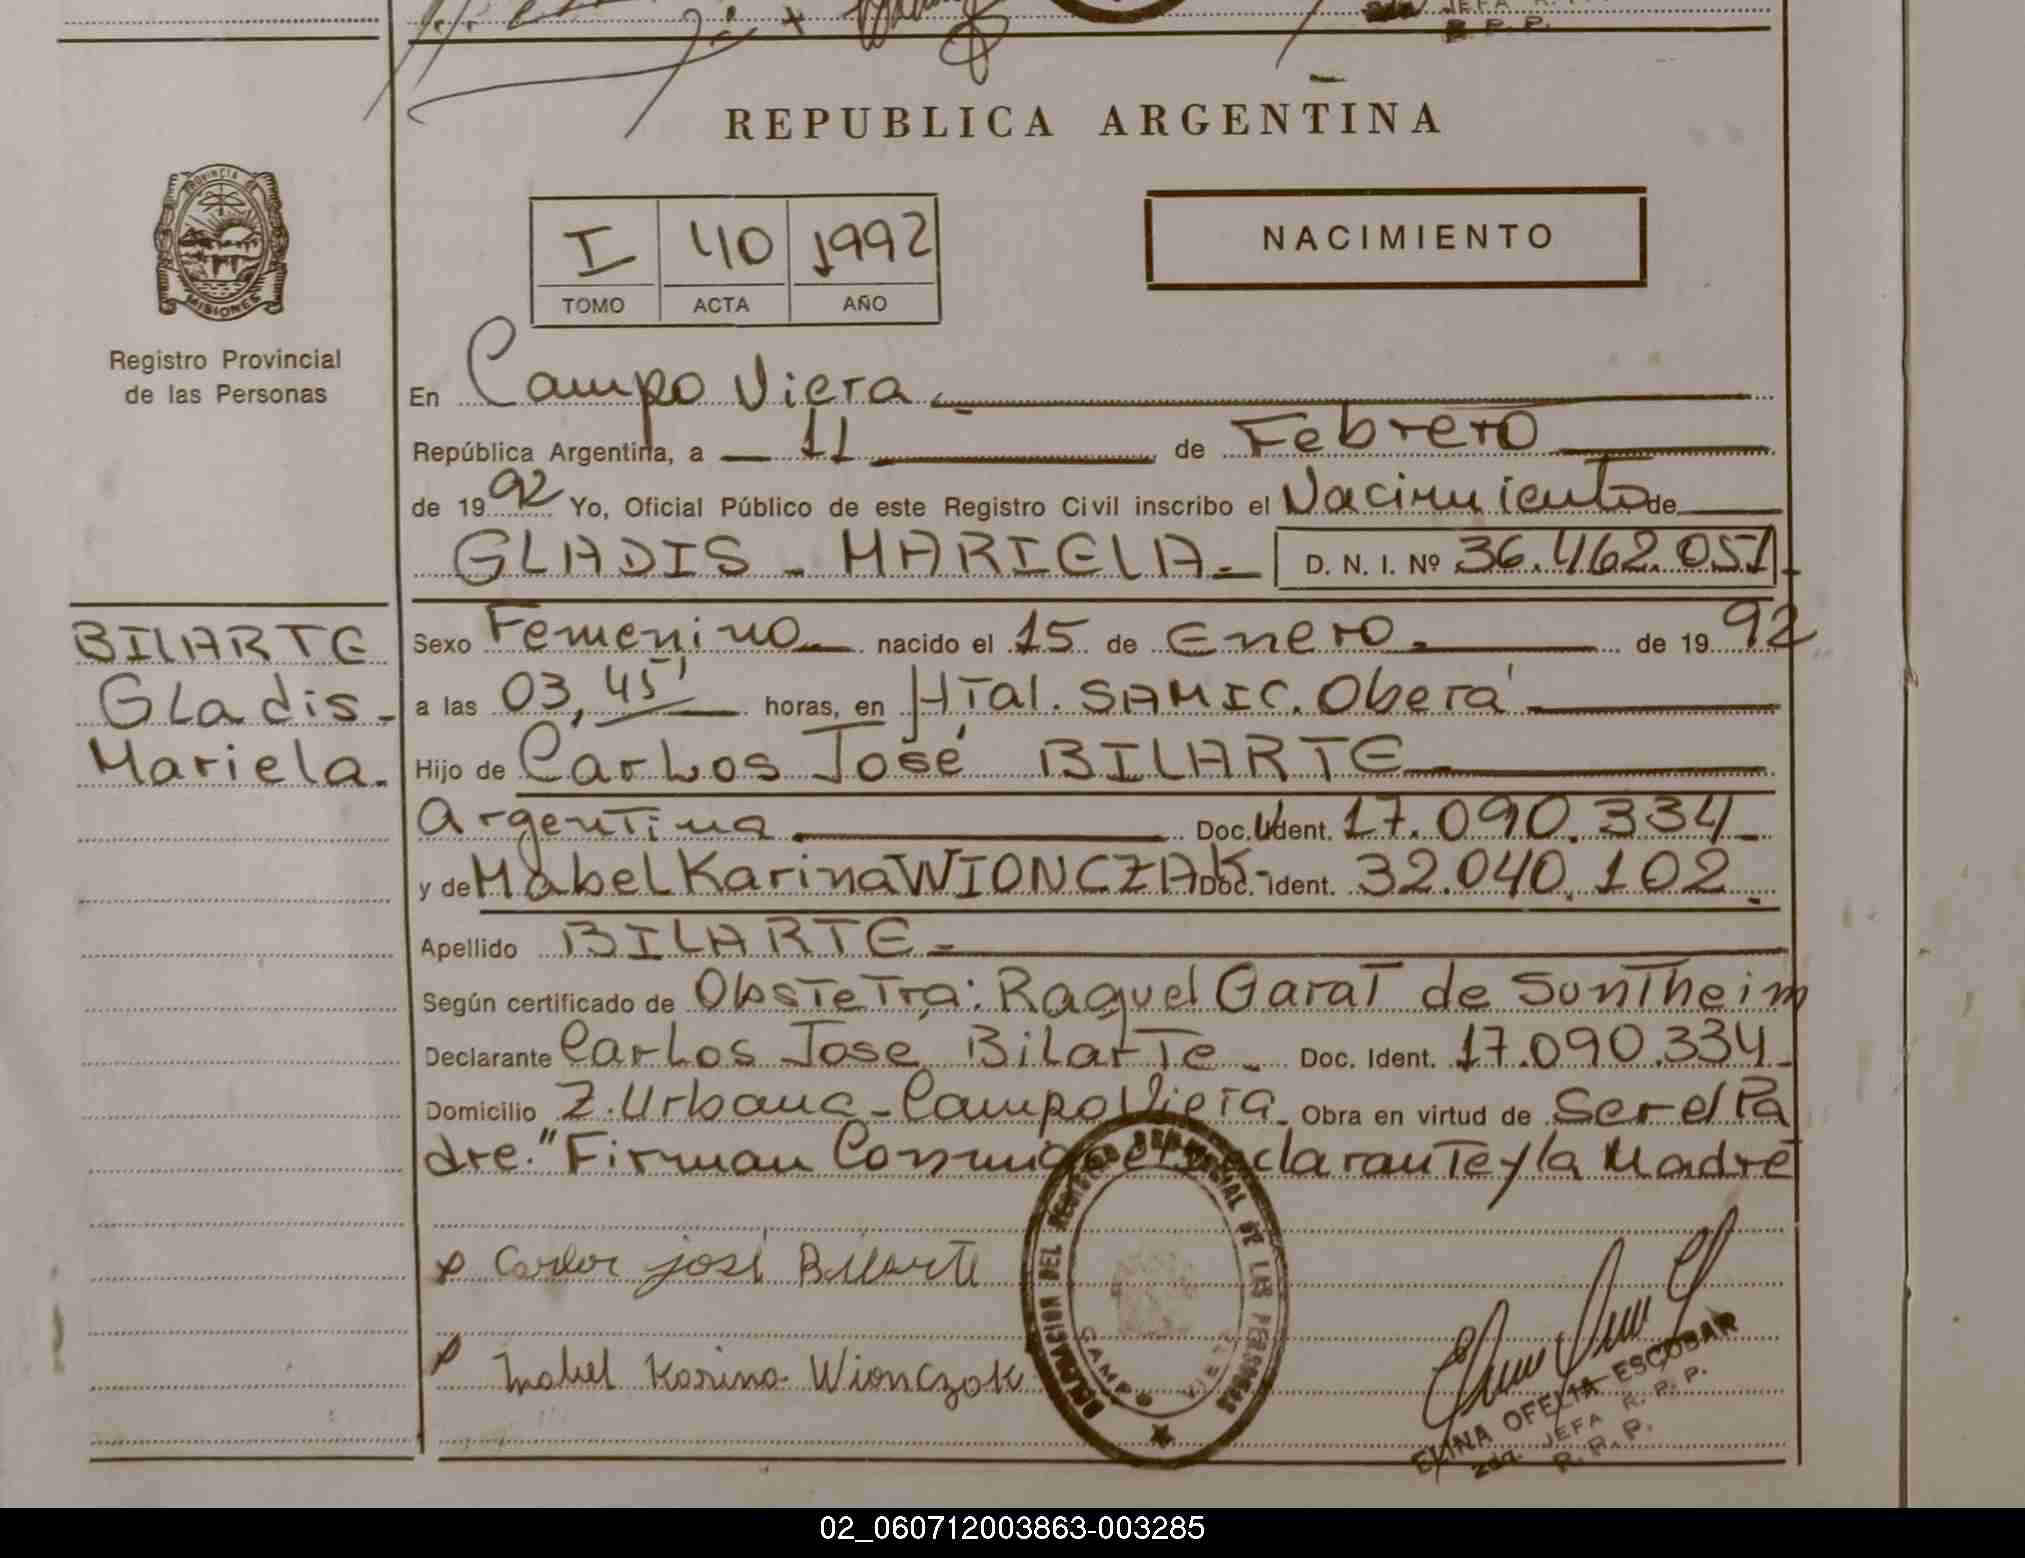 JEFA
R. P. P.
REPUBLICA ARGENTINA
PROVINCIA DE
MISIONES
Registro Provincial
de las Personas
I 40 1992
TOMO ACTA AÑO
NACIMIENTO
En Campo Viera
República Argentina, a 11 de Febrero
de 1992 Yo, Oficial Público de este Registro Civil inscribo el Nacimiento de
GLADIS - MARIELA - D. N. I. Nº 36.462.051
BILARTE
Gladis -
Mariela.
Sexo Femenino nacido el 15 de Enero. de 1992
a las 03,45' horas, en Htal. SAMIC. Oberá
Hijo de Carlos José BILARTE
Argentina Doc. Ident. 17.090.334 -
y de Mabel Karina WIONCZAK - Doc. Ident. 32.040.102.
Apellido BILARTE -
Según certificado de Obstetra: Raquel Garat de Suntheim
Declarante Carlos José Bilarte - Doc. Ident. 17.090.334 -
Domicilio Z. Urbana - Campo Viera - Obra en virtud de Ser el Pa
dre." Firman Conmigo el Declarante y la Madre
Carlos josé Bilarte
Mabel Karina Wionczak
DELEGACION DEL REGISTRO PROVINCIAL DE LAS PERSONAS
CAMPO VIERA
ELINA OFELIA ESCOBAR
2da. JEFA R. P. P.
R. P. P.
02_060712003863-003285